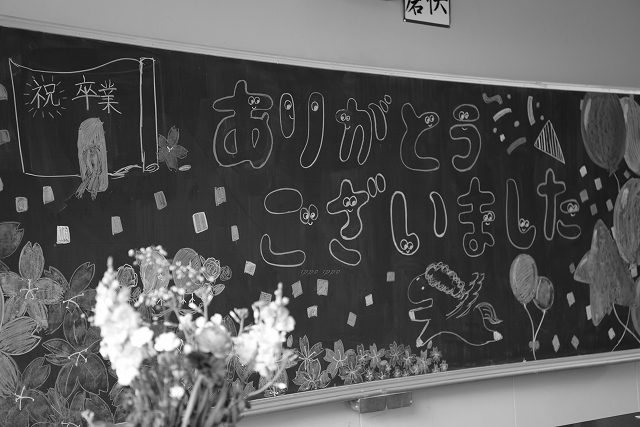 祝 卒業
ありがとう
ございました